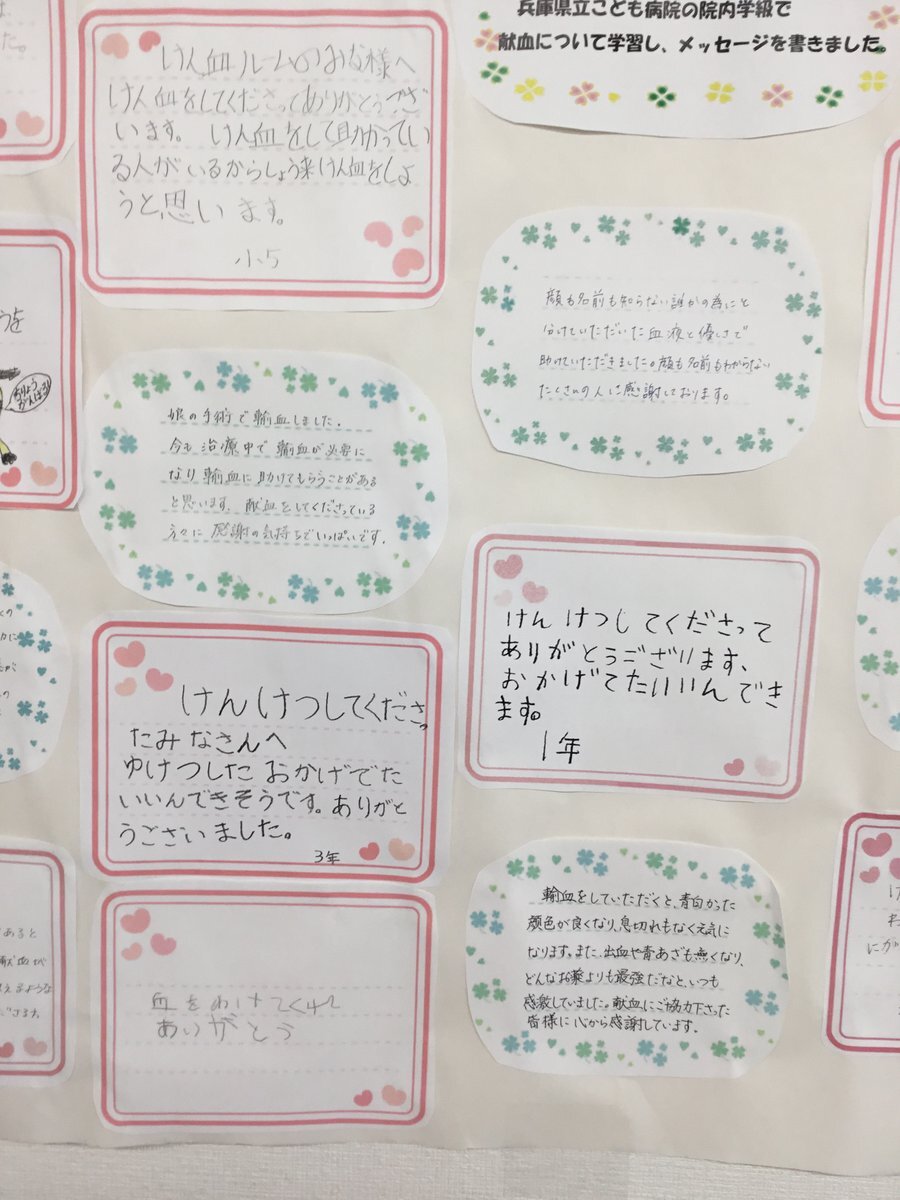 兵庫県立こども病院の院内学級で
献血について学習し、メッセージを書きました。
けん血ルームのみな様へ
けん血をしてくださってありがとうござ
います。けん血をして助かってい
る人がいるからしょう来けん血をしよ
うと思います。
小5
顔も名前も知らない誰かの為にと
分けていただいた血液と優しさで
助けていただきました。顔も名前もわからない
たくさんの人に感謝しております。
娘の手術で輸血しました。
今も治療中で輸血が必要に
なり輸血に助けてもらうことがある
と思います。献血をしてくださっている
方々に感謝の気持ちでいっぱいです。
けんけつしてくださって
ありがとうございます、
おかげてたいいんでき
ます。
1年
けんけつしてくださっ
たみなさんへ
ゆけつしたおかげでた
いいんできそうです。ありがと
うございました。
3年
輸血をしていただくと、青白かった
顔色が良くなり、息切れもなく元気に
なります。また、出血や青あざも無くなり、
どんなお薬よりも最強だなと、いつも
感激していました。献血にご協力下さった
皆様に心から感謝しています。
血をわけてくれ
ありがとう